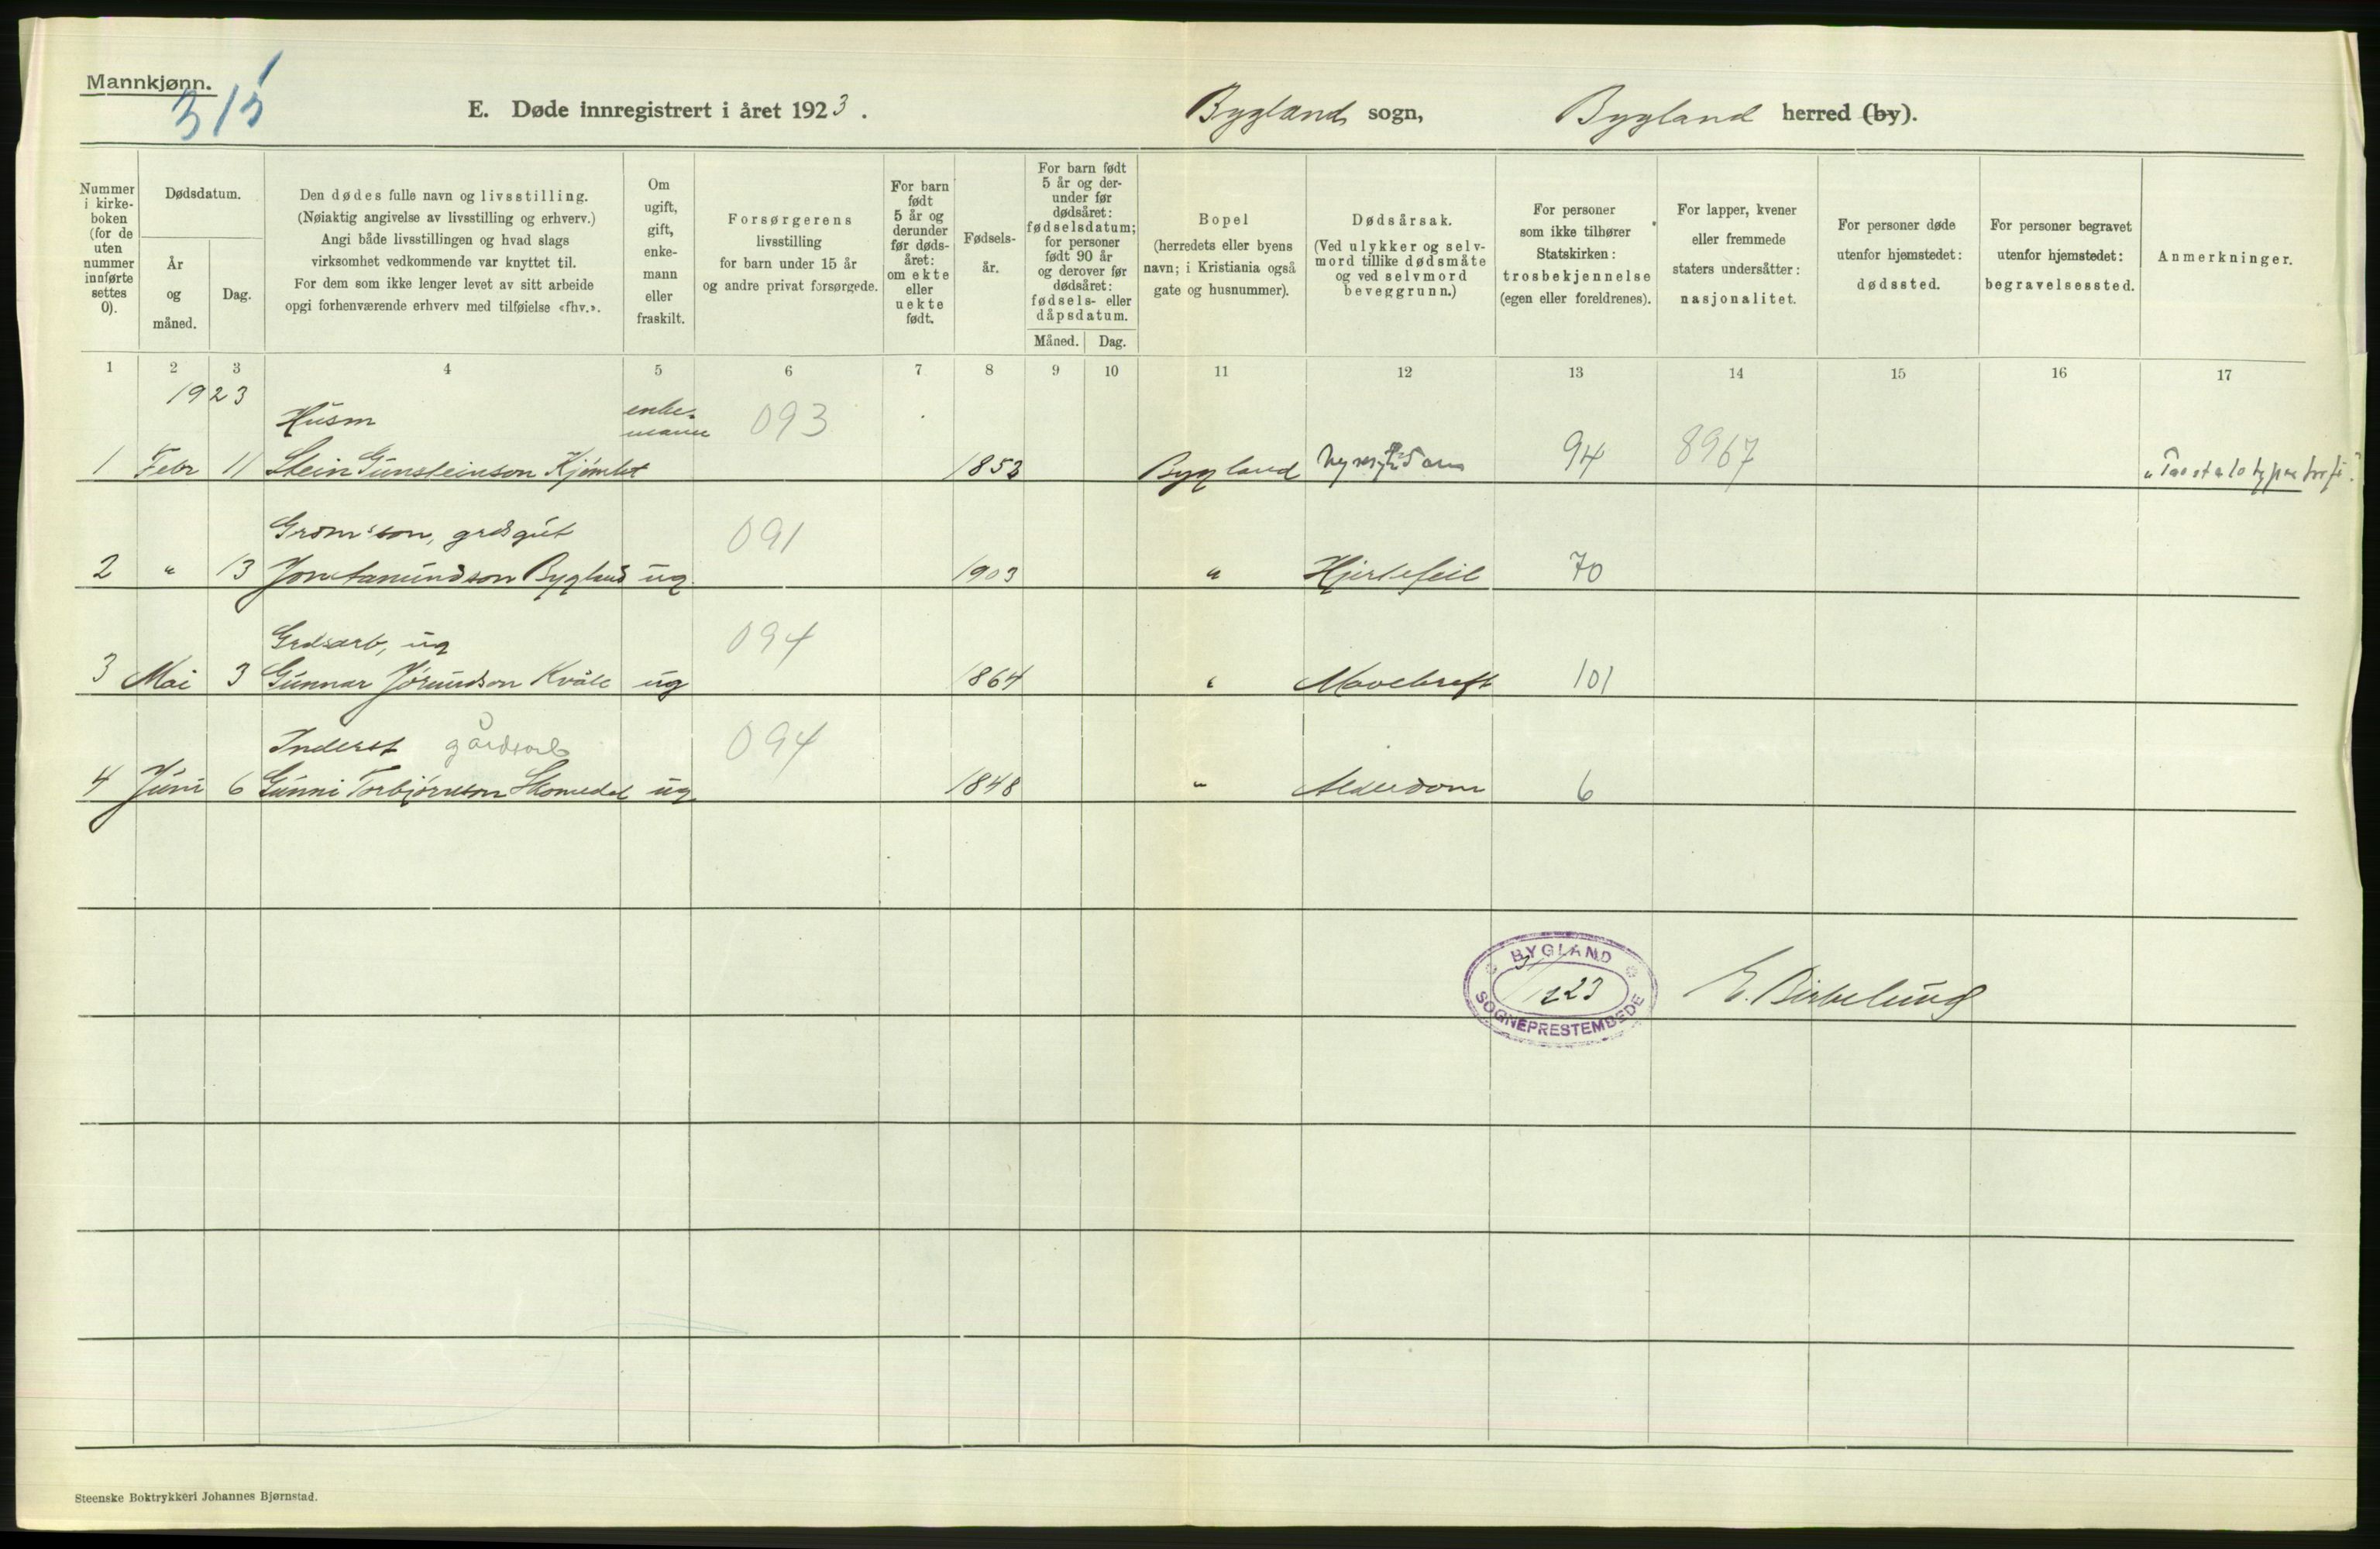 Mannkjønn.
315
E. Døde innregistrert i året 1923.
Bygland sogn,
Bygland herred (by).
Nummer
i kirke-
boken
(for de
uten
nummer
innførte
settes
0).
Dødsdatum.
År
og
måned.
Dag.
Den dødes fulle navn og livsstilling.
(Nøiaktig angivelse av livsstilling og erhverv.)
Angi både livsstillingen og hvad slags
virksomhet vedkommende var knyttet til.
For dem som ikke lenger levet av sitt arbeide
opgi forhenværende erhverv med tilføielse «fhv.».
Om
ugift,
gift,
enke-
mann
eller
fraskilt.
Forsørgerens
livsstilling
for barn under 15 år
og andre privat forsørgede.
For barn
født
5 år og
derunder
før døds-
året:
om ekte
eller
uekte
født.
Fødsels-
år.
For barn født
5 år og der-
under før
dødsåret:
fødselsdatum;
for personer
født 90 år
og derover før
dødsåret:
fødsels- eller
dåpsdatum.
Måned. Dag.
Bopel
(herredets eller byens
navn; i Kristiania også
gate og husnummer).
Dødsårsak.
(Ved ulykker og selv-
mord tillike dødsmåte
og ved selvmord
beveggrunn.)
For personer
som ikke tilhører
Statskirken:
trosbekjennelse
(egen eller foreldrenes).
For lapper, kvener
eller fremmede
staters undersåtter:
nasjonalitet.
For personer døde
utenfor hjemstedet:
dødssted.
For personer begravet
utenfor hjemstedet:
begravelsessted.
Anmerkninger.
1 2 3 4 5 6 7 8 9 10 11 12 13 14 15 16 17
1923
Husm enke- 093
mann
1 Febr 11 Stein Gunsteinson 1853 Bygland 94 8967
grdsgut 091
2 " 13 Bygland ug 1903 " Hjertefeil 70
Grdsarb, ug 094
3 Mai 3 Gunnar Jørundson Kvåle ug 1864 " Mavekreft 101
Inderst gårdsarb 094
4 Juni 6 Gunni Torbjørnson Skomedal ug. 1848 " Alderdom 6
BYGLAND
23
SOGNEPRESTEMBEDE
E. Birkelund
Steenske Boktrykkeri Johannes Bjørnstad.